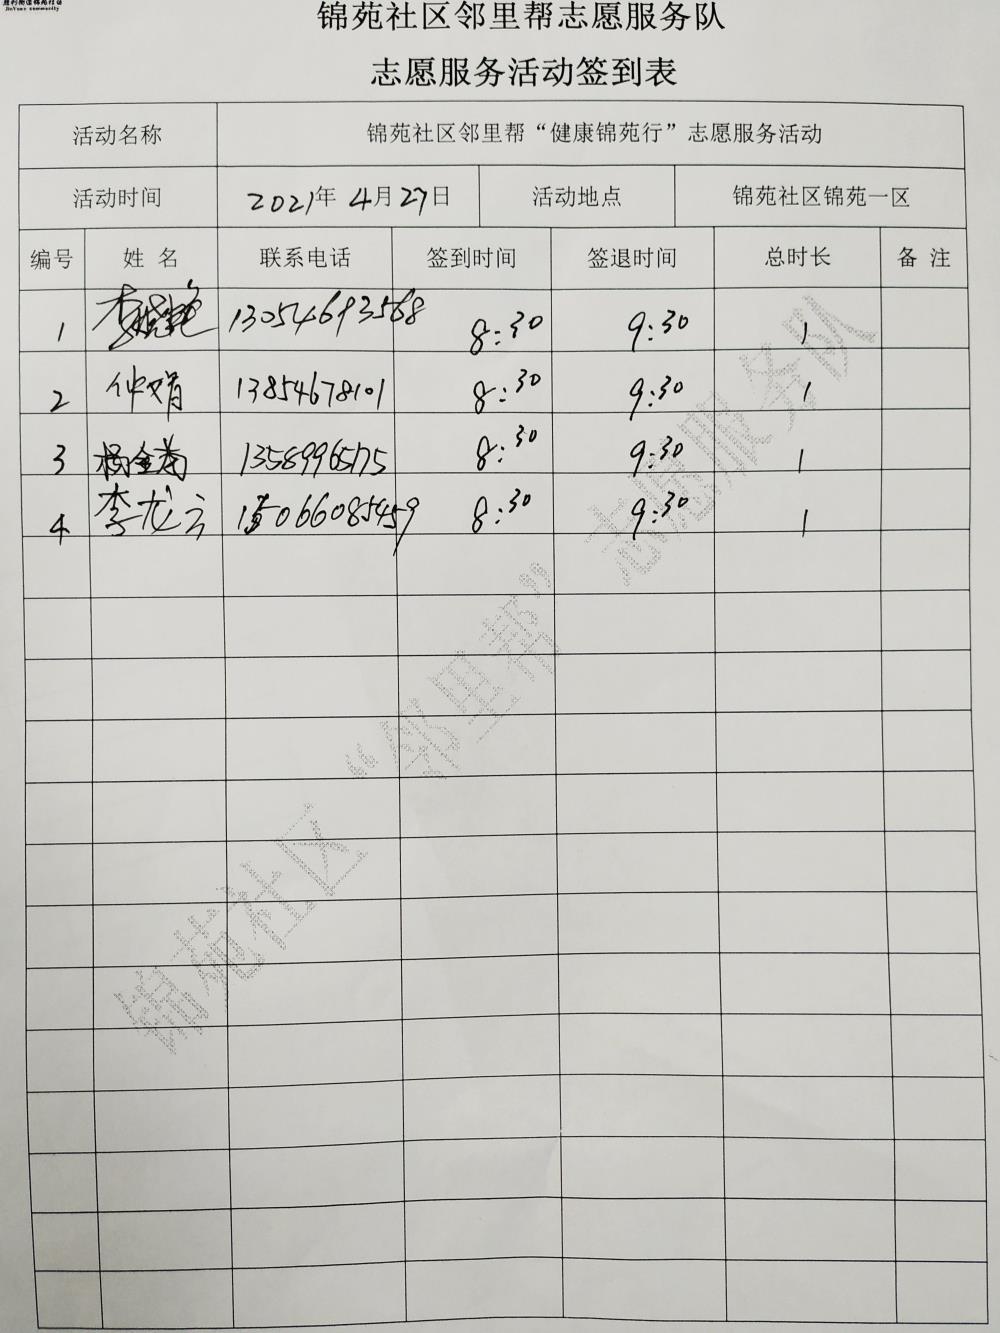 JinYuan community
锦苑社区邻里帮志愿服务队
志愿服务活动签到表
活动名称 锦苑社区邻里帮“健康锦苑行”志愿服务活动
活动时间 2021年 4月27日 活动地点 锦苑社区锦苑一区
编号 姓 名 联系电话 签到时间 签退时间 总时长 备 注
1 13054693568 8:30 9:30 1
2 仲娟 13854678101 8:30 9:30 1
3 杨金菊 13589965175 8:30 9:30 1
4 李龙云 15066085459 8:30 9:30 1
锦苑社区“邻里帮”志愿服务队